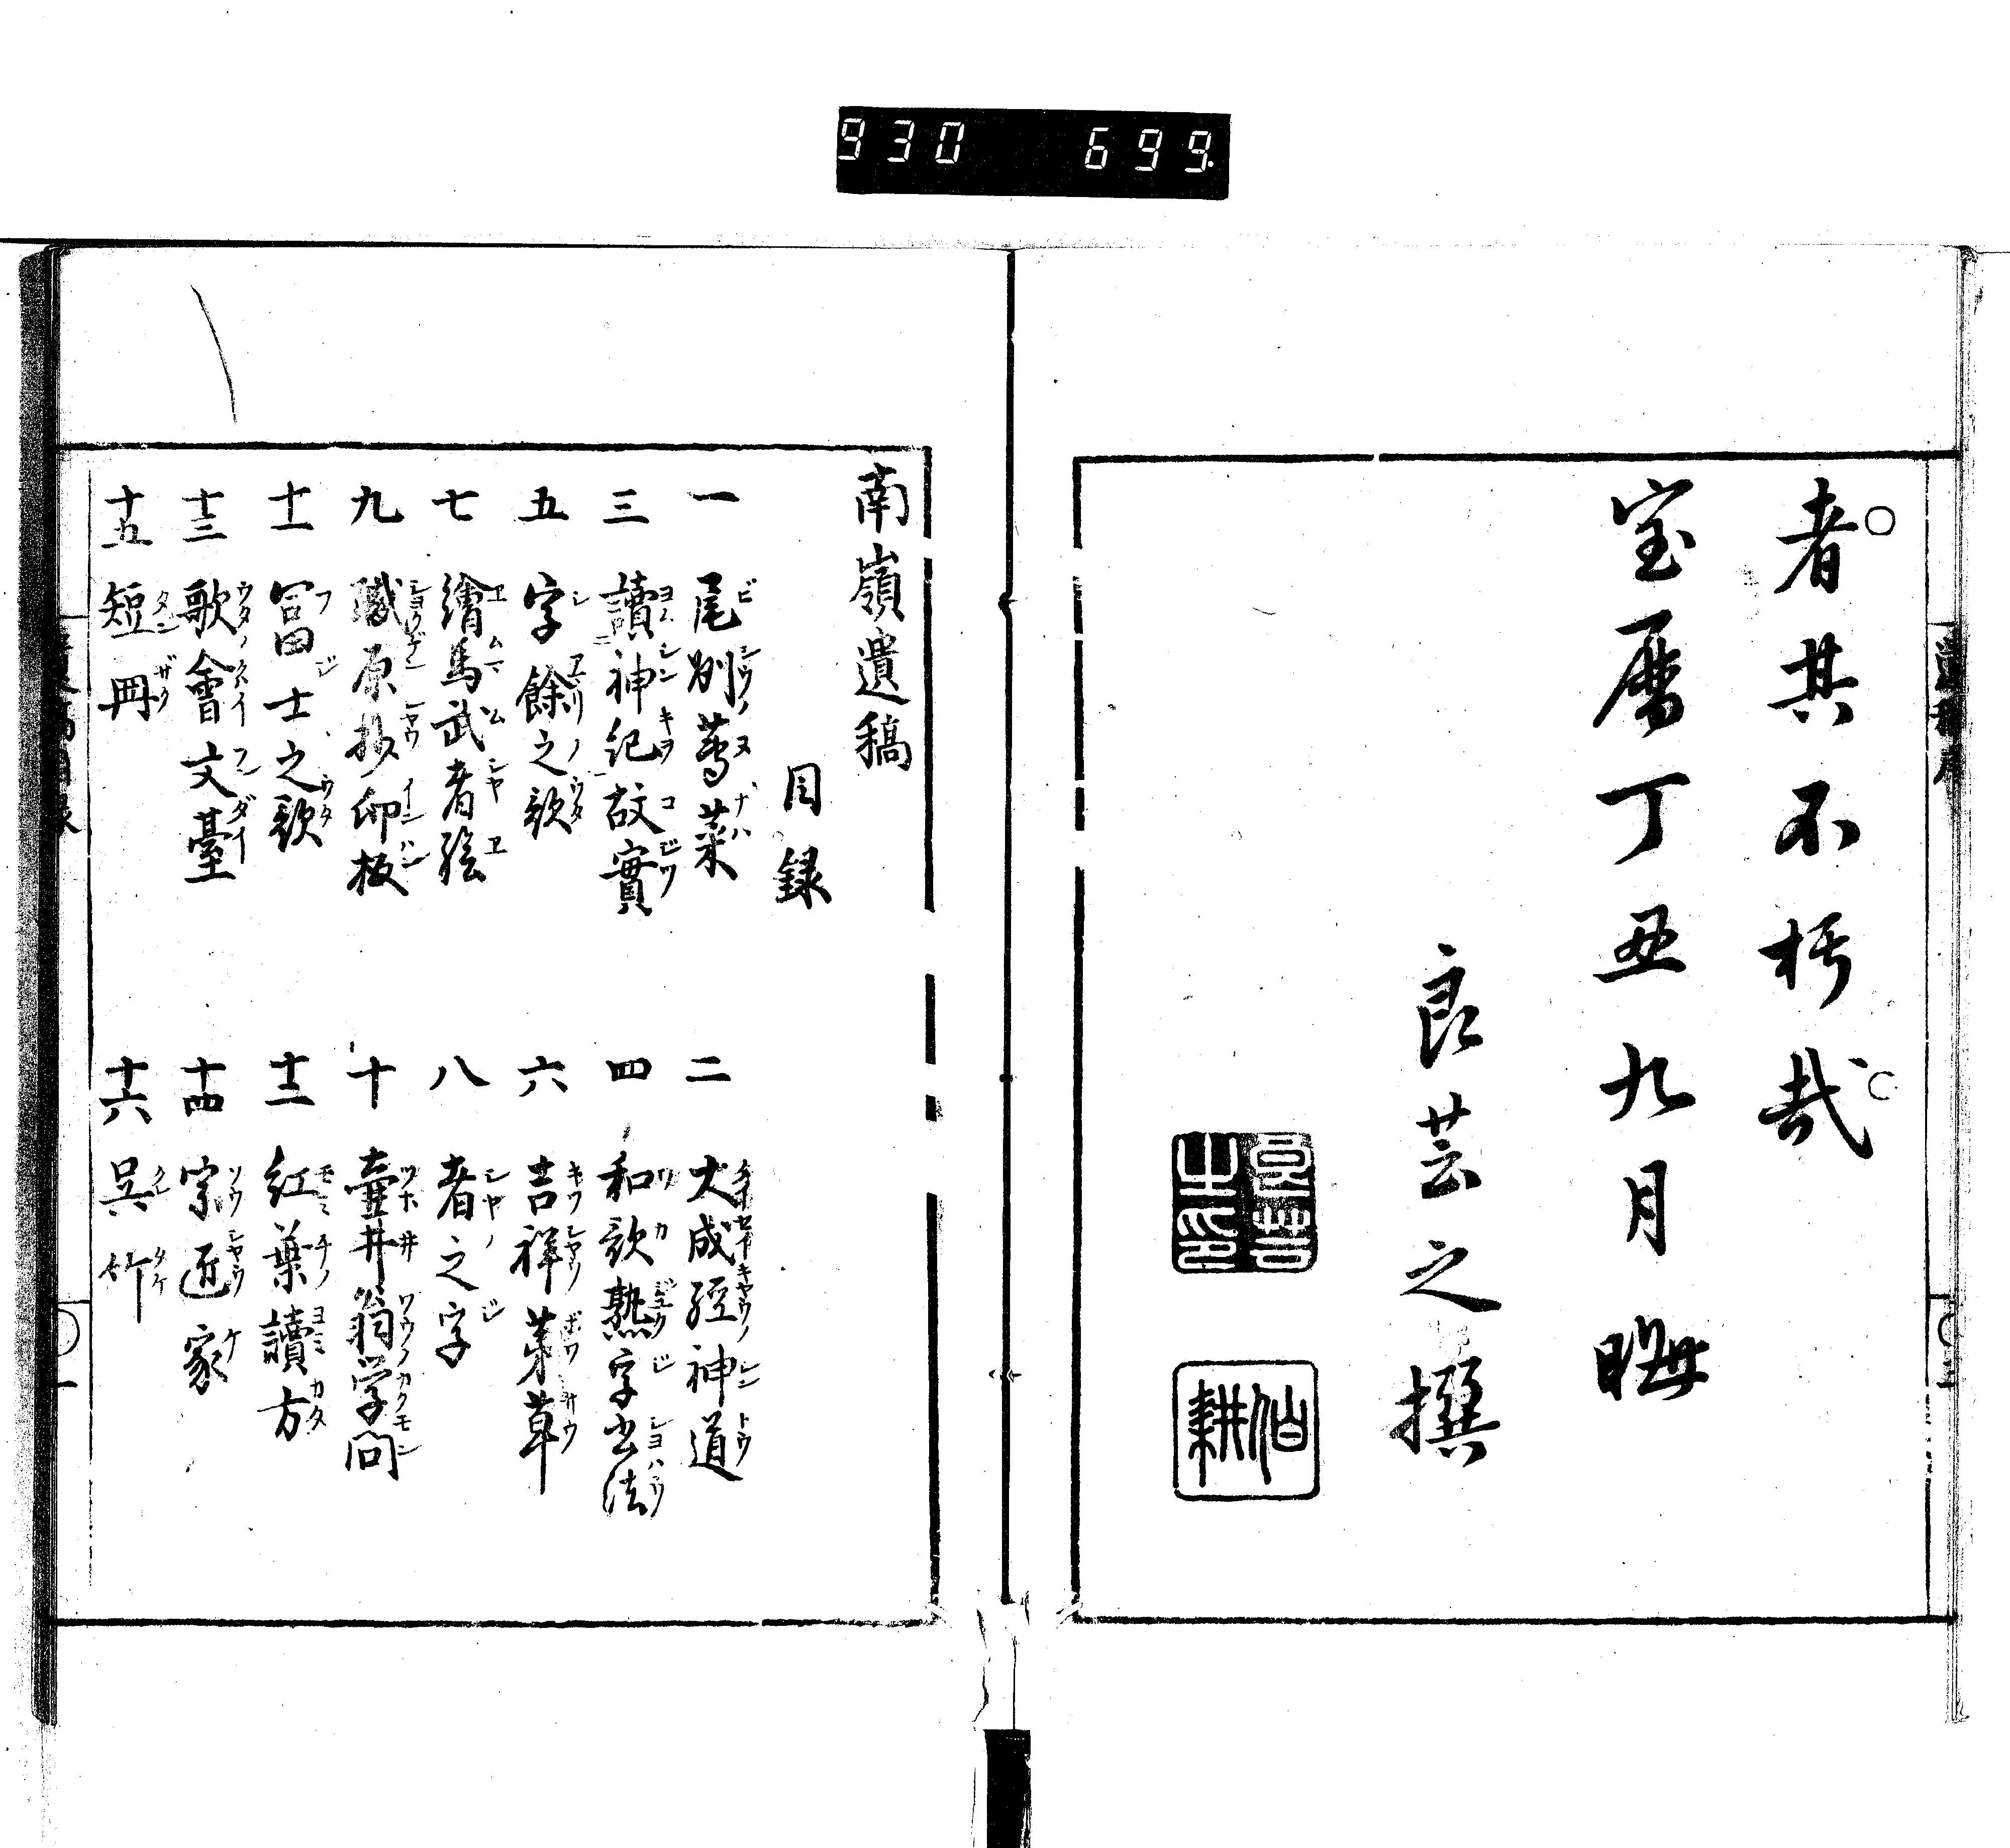 930 699
者其不朽哉
宝暦丁丑九月晦
良芸之撰
良芸之印
伯耕
南嶺遺稿
目録
一 尾州蓴菜
二 大成経神道
三 讀神紀故實
四 和歌熟字出法
五 字餘之歌
六 吉祥茅草
七 繪馬武者絵
八 者之字
九 職原抄印板
十 壷井翁学問
十一 冨士之歌
十二 紅葉讀方
十三 歌會文臺
十四 宗匠家
十五 短冊
十六 呉竹